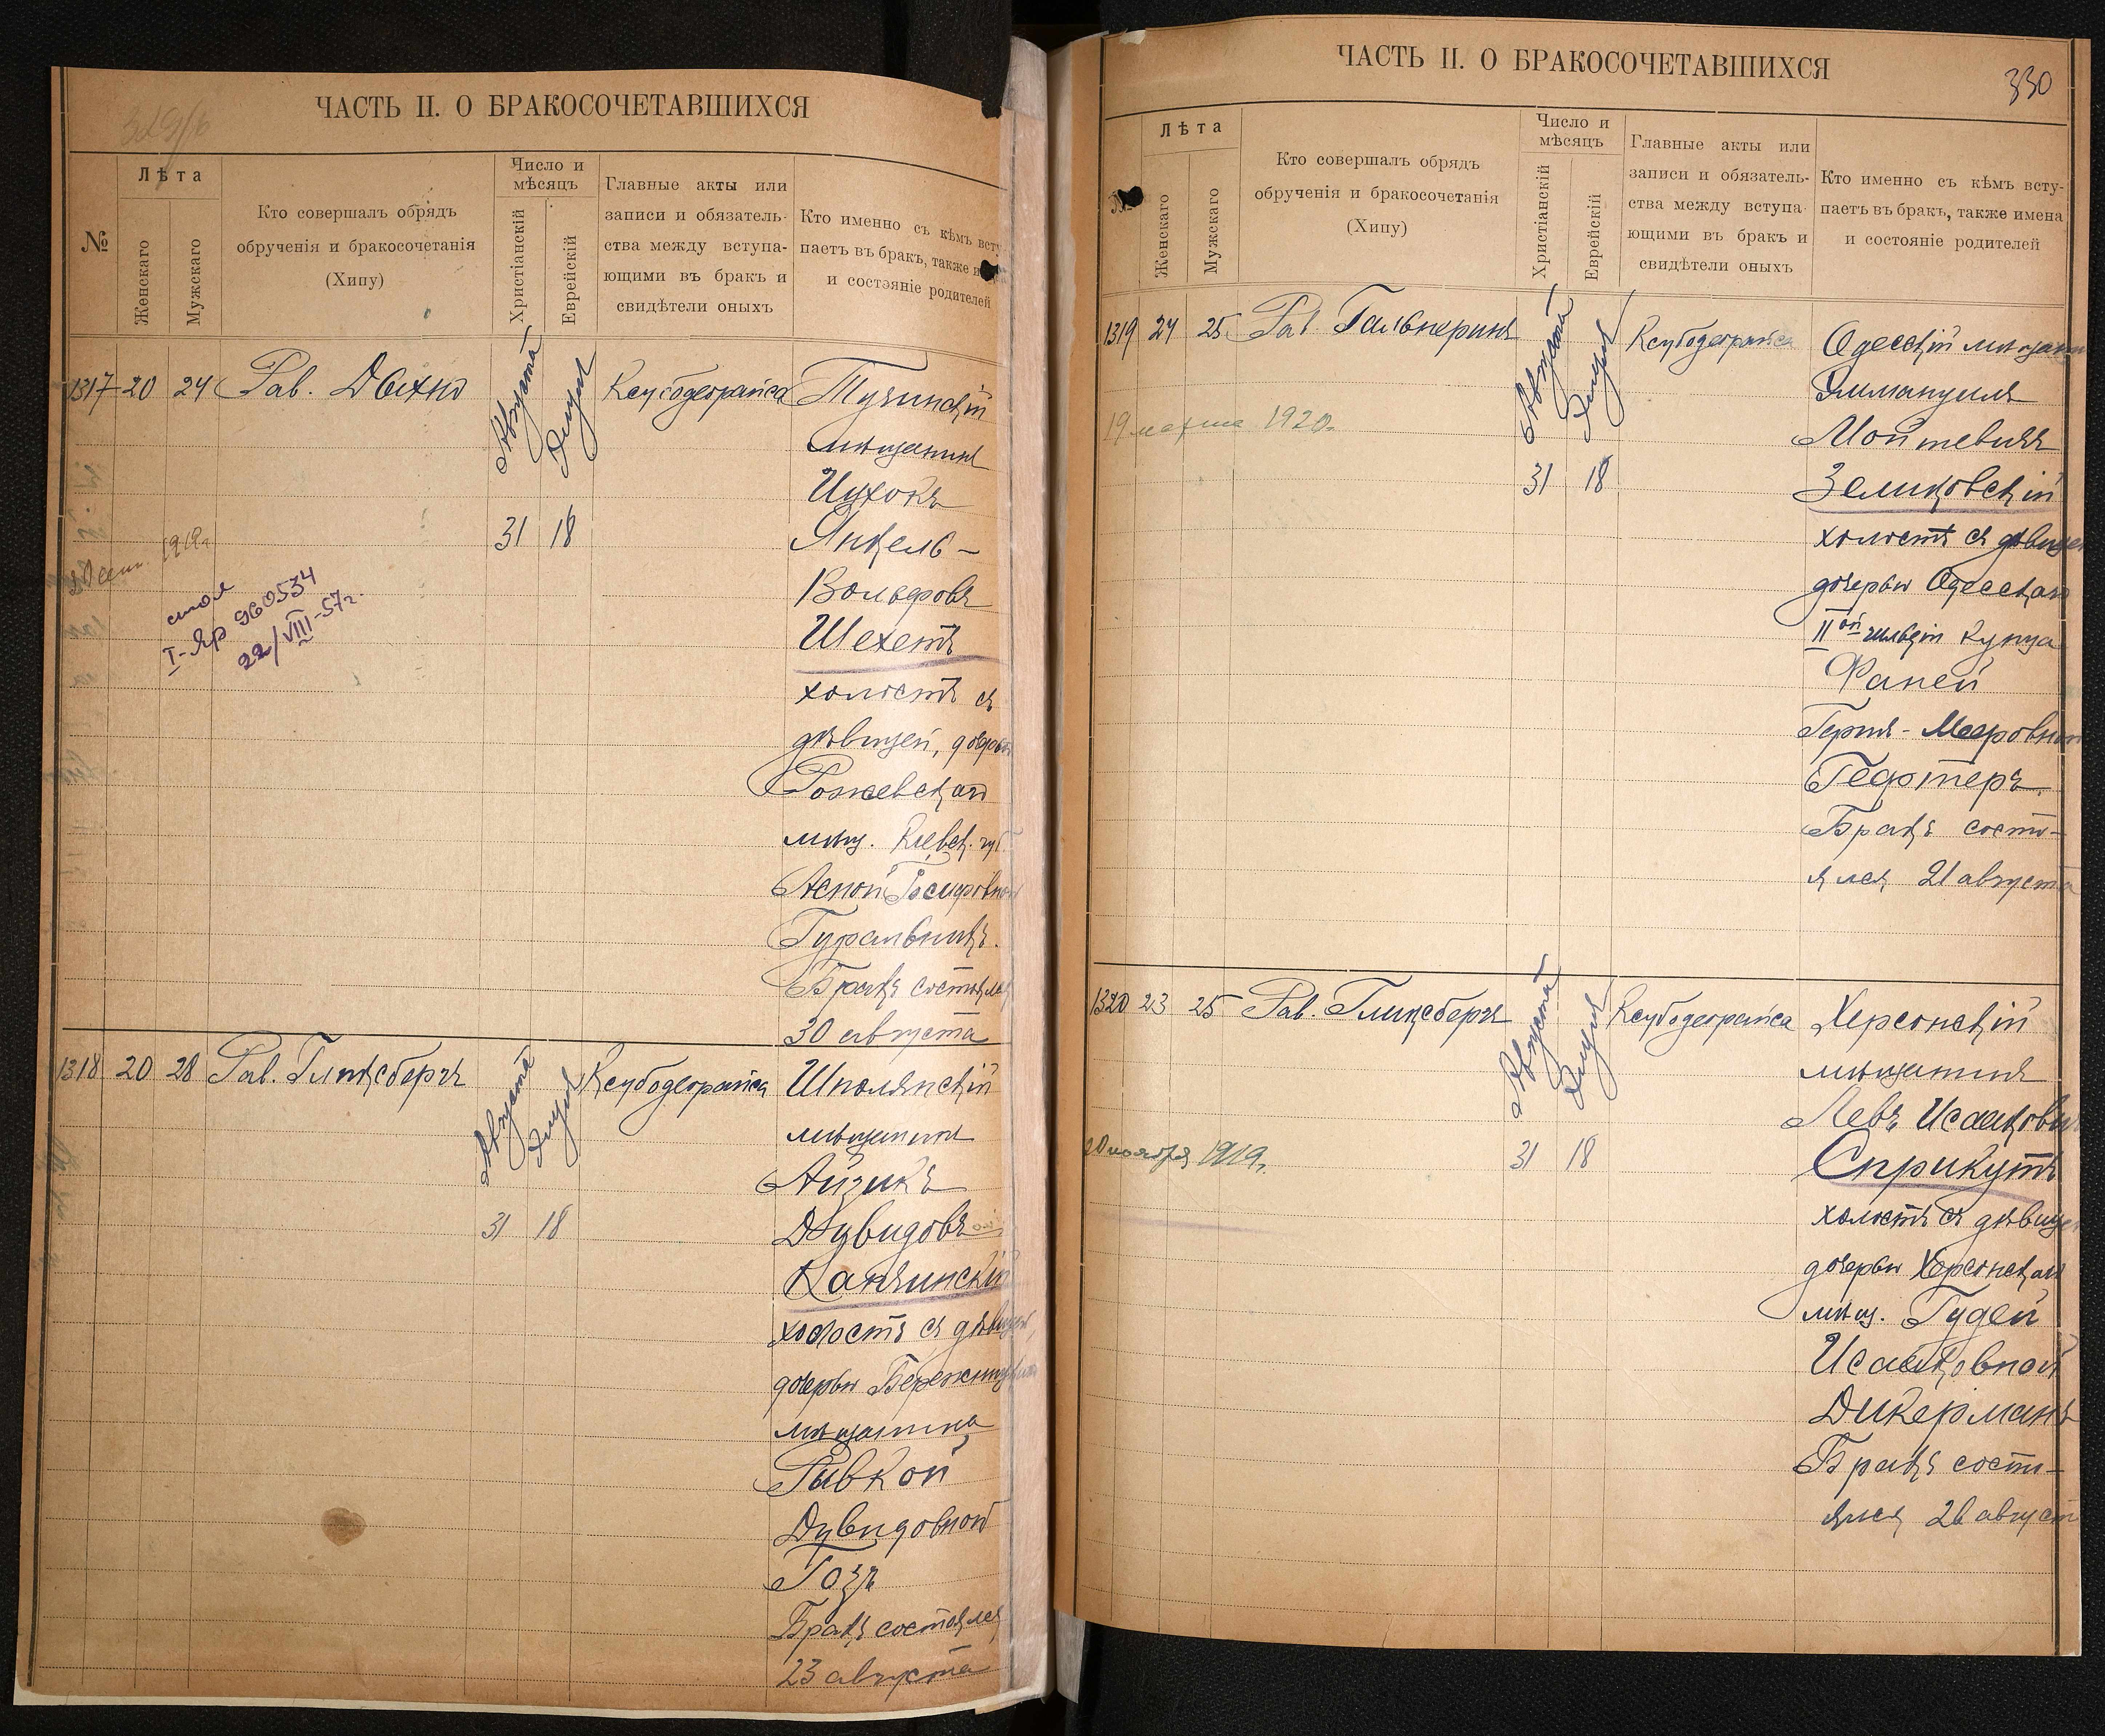 329/б
ЧАСТЬ II. О БРАКОСОЧЕТАВШИХСЯ
№
Лѣта
Женскаго
Мужскаго
Кто совершалъ обрядъ
обрученія и бракосочетанія
(Хипу)
Число и
мѣсяцъ
Христіанскій
Еврейскій
Главные акты или
записи и обязатель-
ства между вступа-
ющими въ бракъ и
свидѣтели оныхъ
Кто именно съ кѣмъ всту
паетъ въ бракъ, также и
и состояніе родителей
1317 20 24 Рав. Дихно Августа Элула Ксубодеграйса Тучинскій
мѣщанинъ
Ицхокъ
31 18 Янкель-
1919г.
Вольфовъ
Шехетъ
I-Яр 960534
22/VIII-57г.
холостъ съ
дѣвицей, дочерью
Рожевскаго
мѣщ. Кіевск. губ.
Асной Іосифовной
Гуральникъ.
Бракъ состоялся
30 августа
1318 20 28 Рав. Гликсбергъ Августа Элула Ксубодеграйса Шполянскій
мѣщанинъ
Айзикъ
31 18 Дувидовъ
Капчинскій
холостъ съ дѣвицей,
дочерью
мѣщанина
Рывкой
Дувидовной
Гозъ
Бракъ состоялся
23 августа
ЧАСТЬ II. О БРАКОСОЧЕТАВШИХСЯ
330
№
Лѣта
Женскаго
Мужскаго
Кто совершалъ обрядъ
обрученія и бракосочетанія
(Хипу)
Число и
мѣсяцъ
Христіанскій
Еврейскій
Главные акты или
записи и обязатель-
ства между вступа-
ющими въ бракъ и
свидѣтели оныхъ
Кто именно съ кѣмъ всту-
паетъ въ бракъ, также имена
и состояніе родителей
1319 24 25 Рав. Гальперинъ Августа Элула Ксубодеграйса Одесскій мѣщан
Эммануилъ
19 марта 1920г. Мойшевичъ
31 18 Зелицовскій
холостъ съ дѣвицей
дочерью Одесскаго
IIой гильдіи купца
Фаней
Герця-Мееровной
Гефтеръ.
Бракъ состо-
ялся 21 августа
1320 23 25 Рав. Гликсбергъ Августа Элула Ксубодеграйса Херсонскій
мѣщанинъ
Левъ Исааковъ
20 ноября 1919г. 31 18 Сприкутъ
холостъ съ дѣвицей
дочерью Херсонскаго
мѣщ. Гудей
Исааковной
Дикерманъ
Бракъ состо-
ялся 26 август